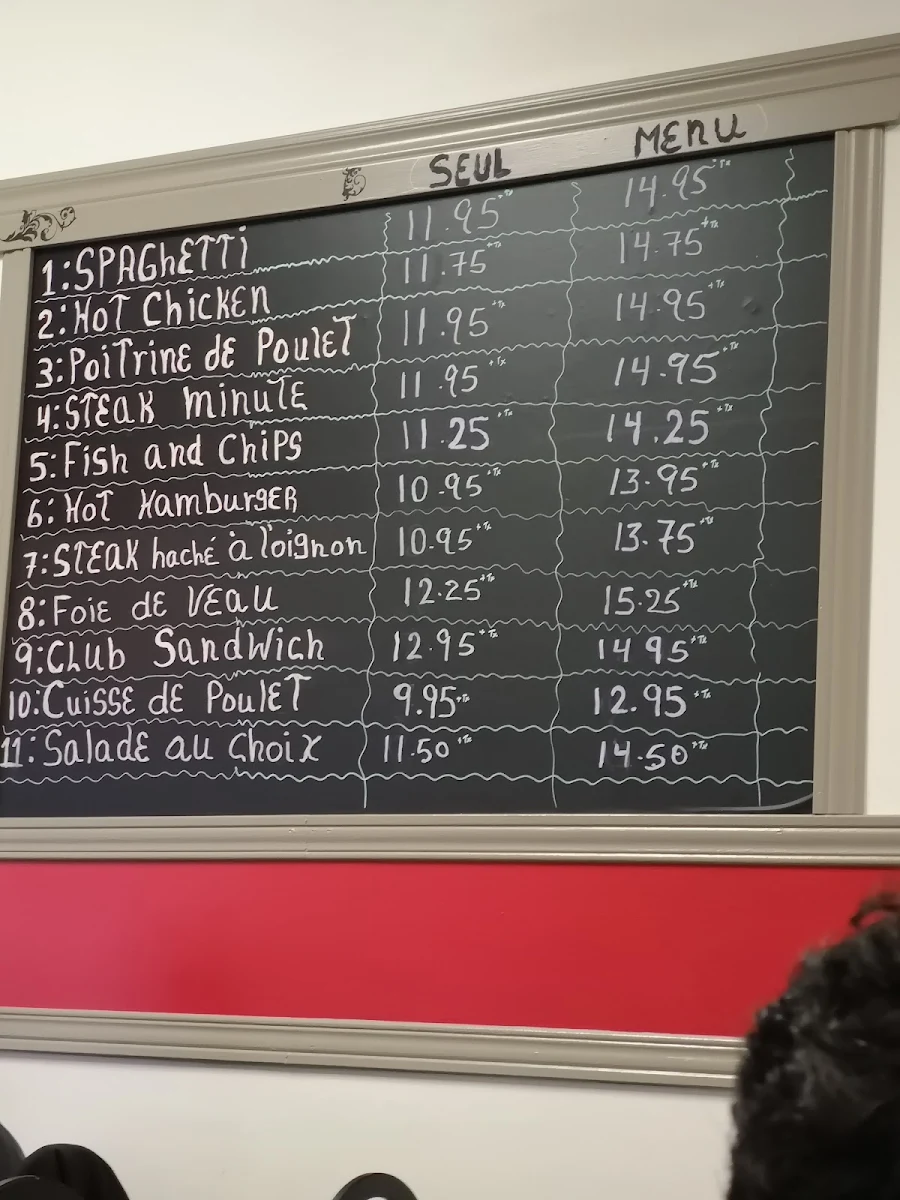 SEUL MENU
1:SPAGhETTi 11.95+Tx 14.95+Tx
2:HOT Chicken 11.75+Tx 14.75+Tx
3:Poitrine de Poulet 11.95+Tx 14.95+Tx
4:STEAK minute 11.95+Tx 14.95+Tx
5:Fish and Chips 11.25+Tx 14.25+Tx
6:HOT Hamburger 10.95+Tx 13.95+Tx
7:STEAK haché à l'oignon 10.95+Tx 13.75+Tx
8:Foie de VEau 12.25+Tx 15.25+Tx
9:CLub Sandwich 12.95+Tx 14 95+Tx
10:Cuisse de Poulet 9.95+Tx 12.95+Tx
11:Salade au Choix 11.50+Tx 14.50+Tx